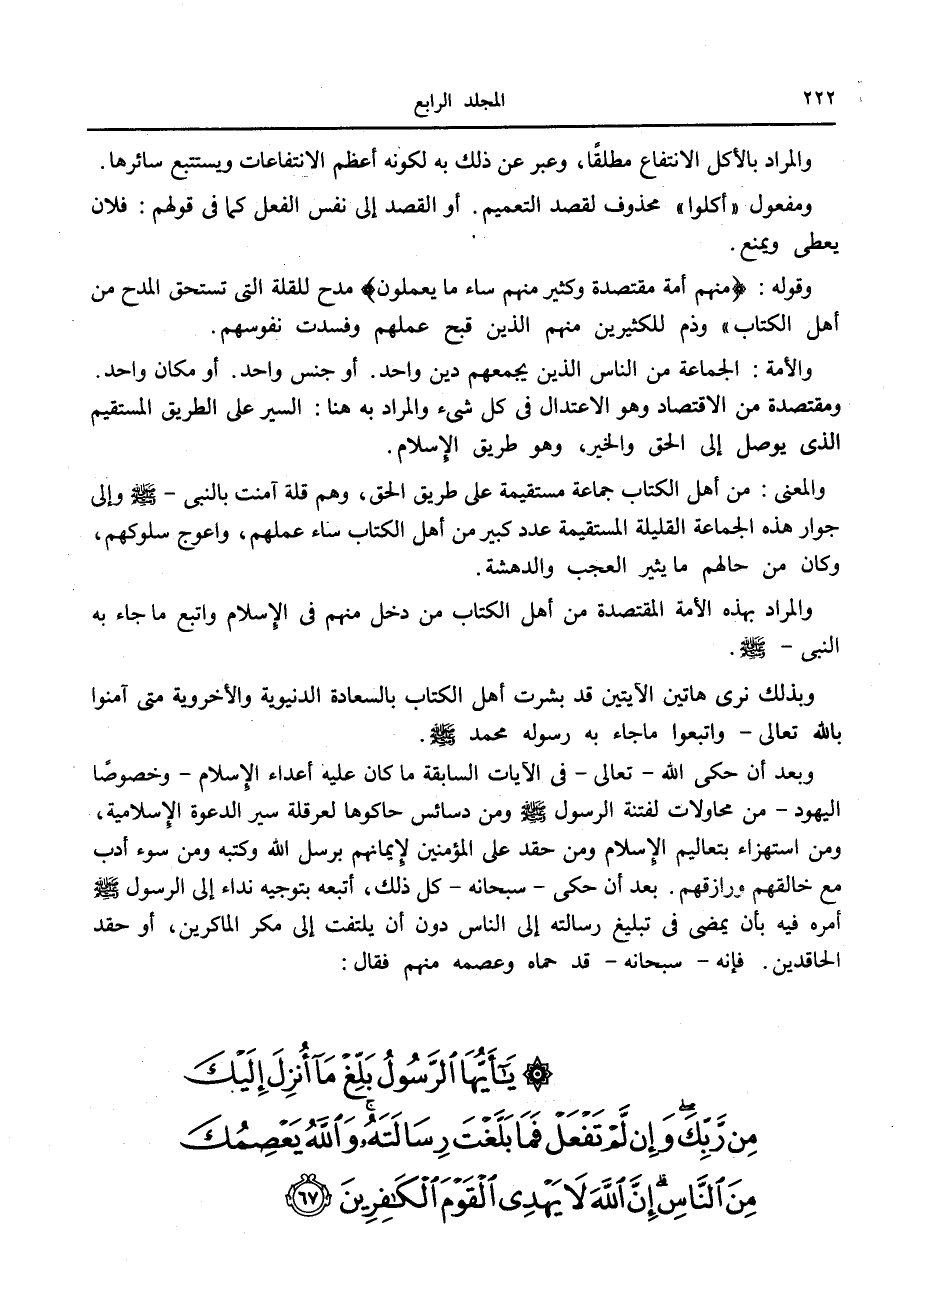 ٢٢٢
المجلد الرابع
والمراد بالأكل الانتفاع مطلقًا، وعبر عن ذلك به لكونه أعظم الانتفاعات ويستتبع سائرها.
ومفعول «أكلوا» محذوف لقصد التعميم. أو القصد إلى نفس الفعل كما فى قولهم : فلان
يعطى ويمنع.
وقوله : ﴿منهم أمة مقتصدة وكثير منهم ساء ما يعملون﴾ مدح للقلة التى تستحق المدح من
أهل الكتاب» وذم للكثيرين منهم الذين قبح عملهم وفسدت نفوسهم.
والأمة : الجماعة من الناس الذين يجمعهم دين واحد. أو جنس واحد. أو مكان واحد.
ومقتصدة من الاقتصاد وهو الاعتدال فى كل شىء والمراد به هنا : السير على الطريق المستقيم
الذى يوصل إلى الحق والخير، وهو طريق الإسلام.
والمعنى : من أهل الكتاب جماعة مستقيمة على طريق الحق، وهم قلة آمنت بالنبى - ﷺ وإلى
جوار هذه الجماعة القليلة المستقيمة عدد كبير من أهل الكتاب ساء عملهم، واعوج سلوكهم،
وكان من حالهم ما يثير العجب والدهشة.
والمراد بهذه الأمة المقتصدة من أهل الكتاب من دخل منهم فى الإسلام واتبع ما جاء به
النبى - ﷺ.
وبذلك نرى هاتين الآيتين قد بشرت أهل الكتاب بالسعادة الدنيوية والأخروية متى آمنوا
بالله تعالى - واتبعوا ماجاء به رسوله محمد ﷺ.
وبعد أن حكى الله - تعالى - فى الآيات السابقة ما كان عليه أعداء الإسلام - وخصوصًا
اليهود - من محاولات لفتنة الرسول ﷺ ومن دسائس حاكوها لعرقلة سير الدعوة الإسلامية،
ومن استهزاء بتعاليم الإسلام ومن حقد على المؤمنين لإيمانهم برسل الله وكتبه ومن سوء أدب
مع خالقهم ورازقهم. بعد أن حكى - سبحانه - كل ذلك، أتبعه بتوجيه نداء إلى الرسول ﷺ
أمره فيه بأن يمضى فى تبليغ رسالته إلى الناس دون أن يلتفت إلى مكر الماكرين، أو حقد
الحاقدين. فإنه - سبحانه - قد حماه وعصمه منهم فقال :
۞ يَـٰٓأَيُّهَا ٱلرَّسُولُ بَلِّغْ مَآ أُنزِلَ إِلَيْكَ
مِن رَّبِّكَ ۖ وَإِن لَّمْ تَفْعَلْ فَمَا بَلَّغْتَ رِسَالَتَهُۥ ۚ وَٱللَّهُ يَعْصِمُكَ
مِنَ ٱلنَّاسِ ۗ إِنَّ ٱللَّهَ لَا يَهْدِى ٱلْقَوْمَ ٱلْكَـٰفِرِينَ ﴿٦٧﴾